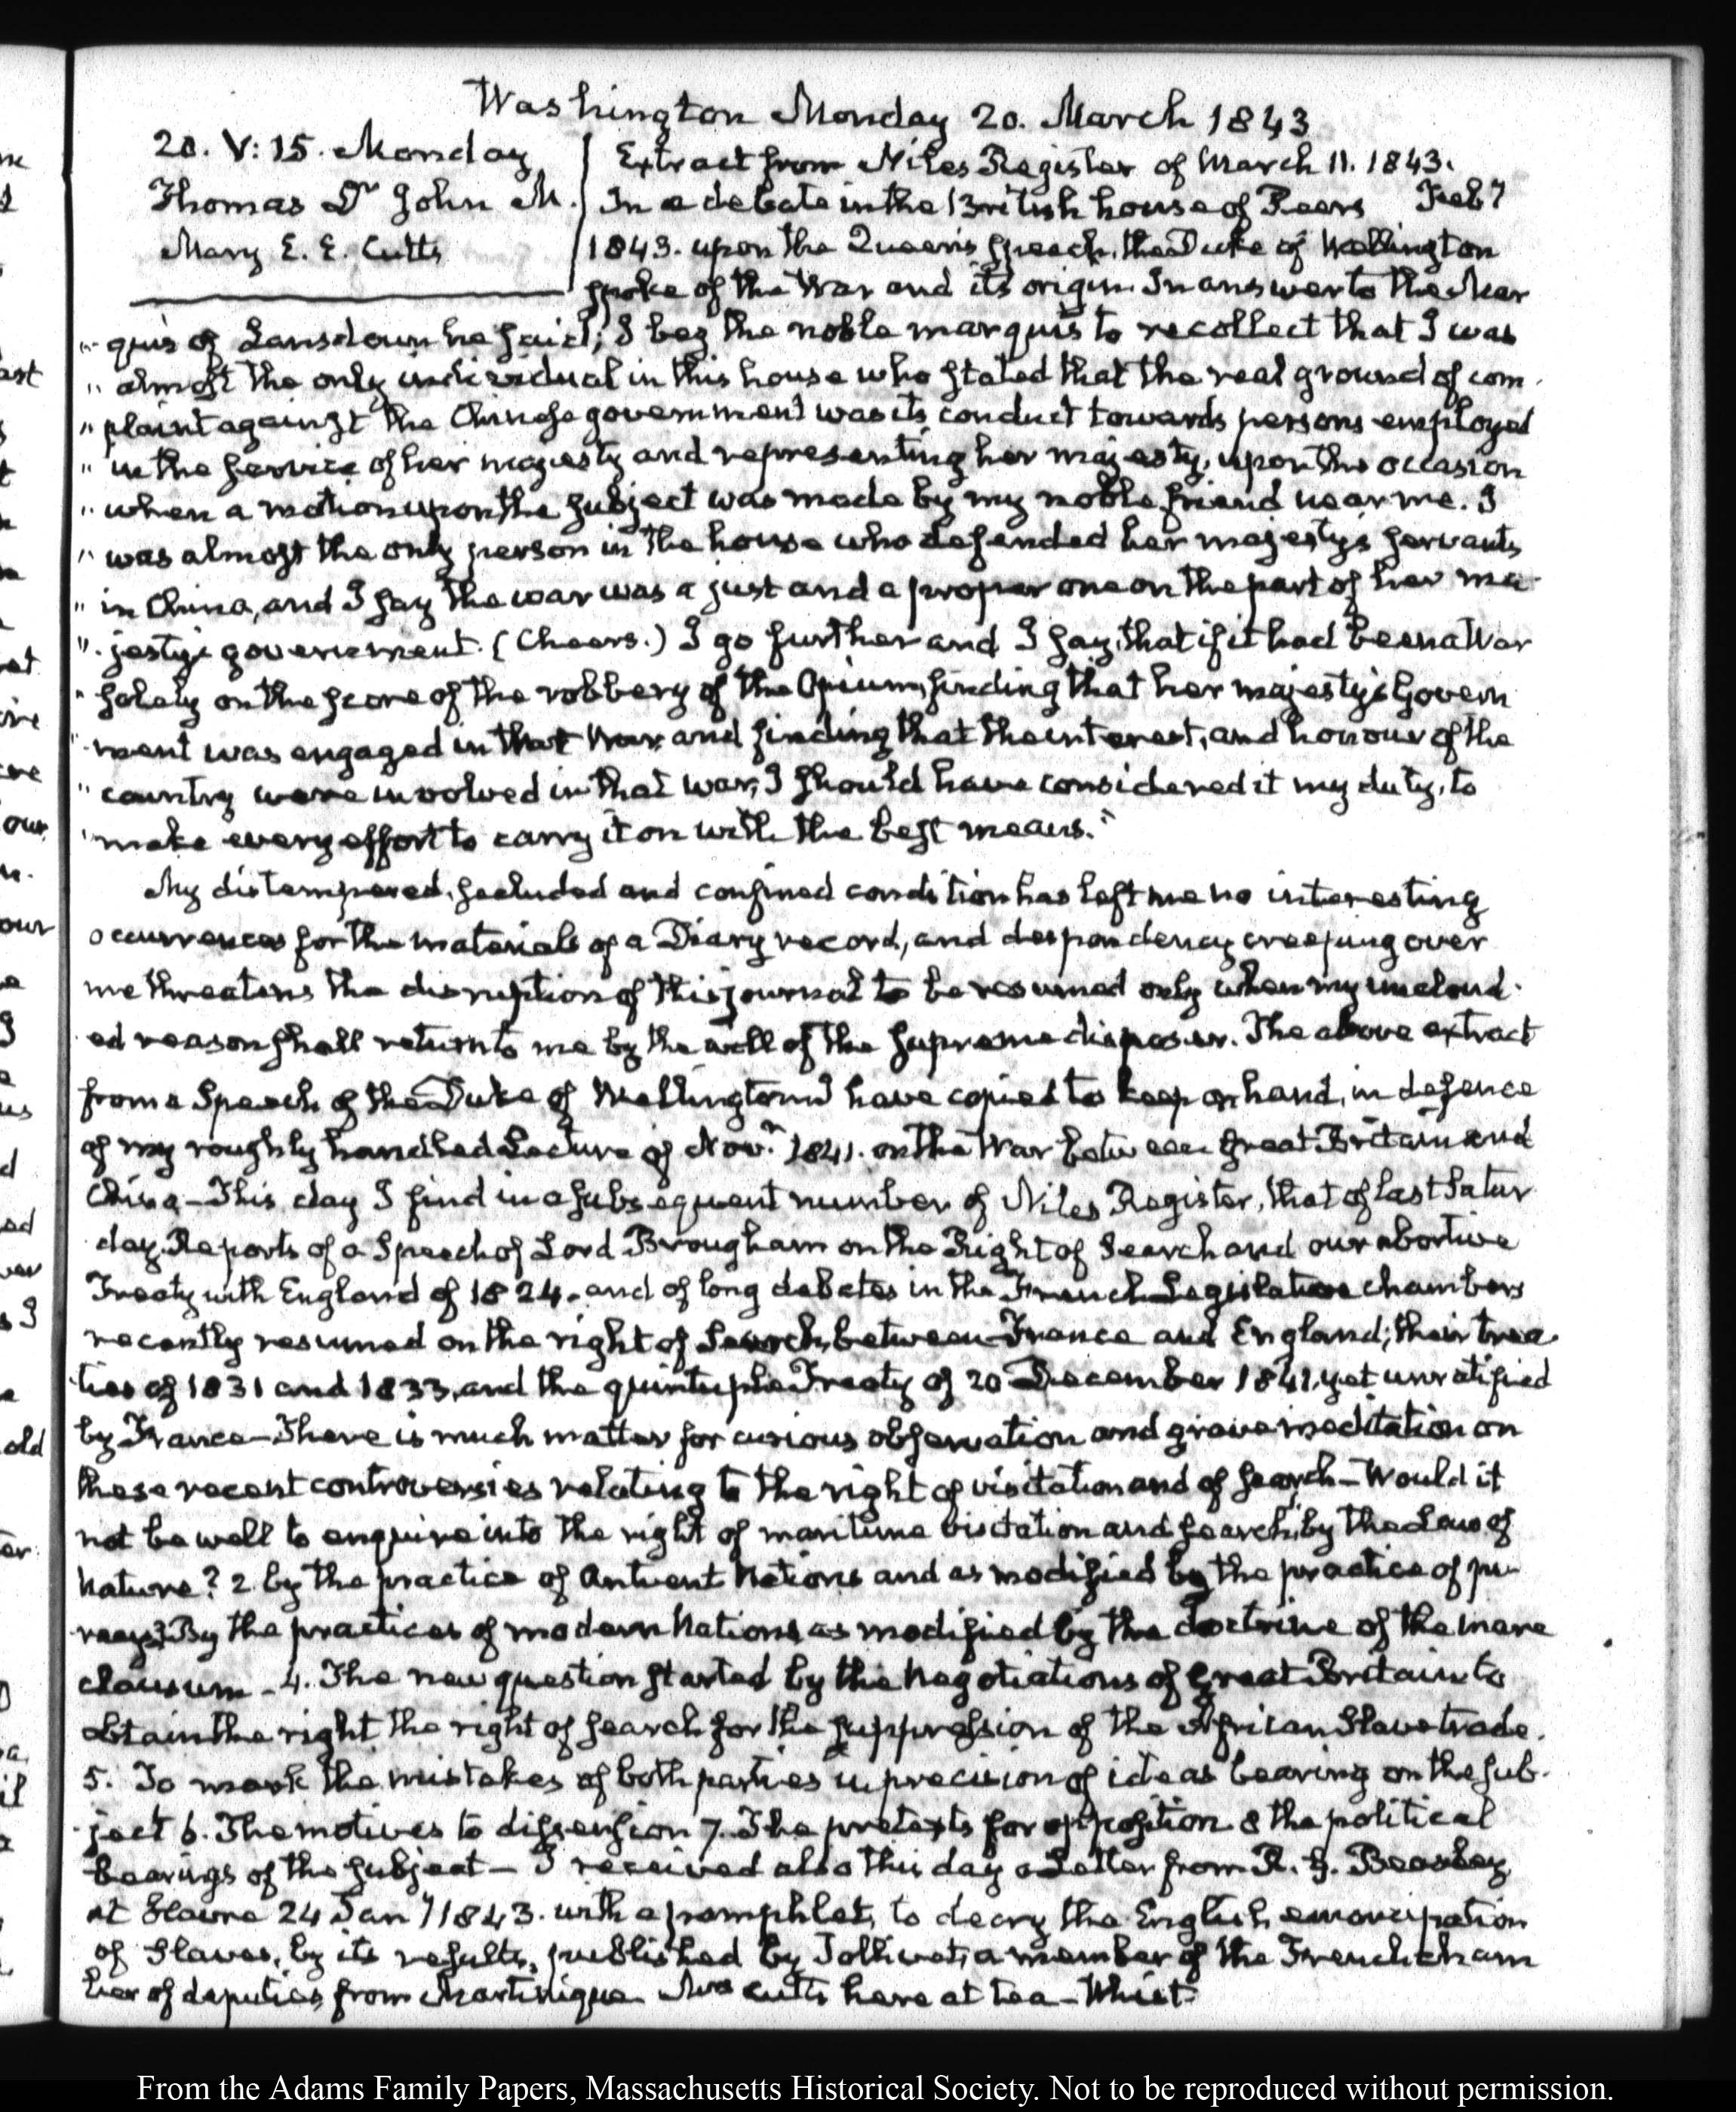 Washington Monday 20. March 1843
20. V: 15. Monday
Thomas Dr John M.
Mary E. E. Cutts
Extract from Niles Register of March 11. 1843.
In a debate in the British house of Peers Feby
1843. upon the Queen's speech, the Duke of Wellington
spoke of the War and its origin. In answer to the Mar
"quis of Lansdown he said; I beg the noble marquis to recollect that I was
"almost the only individual in this house who stated that the real ground of com
"plaint against the Chinese government was its conduct towards persons employed
"in the service of her majesty and representing her majesty, upon the occasion
"when a motion upon the subject was made by my noble friend near me. I
"was almost the only person in the house who defended her majesty's servants
"in China, and I say the war was a just and a proper one on the part of her ma
"jesty's government. (Cheers.) I go further and I say, that if it had been a War
"solely on the score of the robbery of the Opium, finding that her majesty's Govern
"ment was engaged in that War, and finding that the interest, and honour of the
"country were involved in that war, I should have considered it my duty, to
"make every effort to carry it on with the best means."
My distempered, secluded and confined condition has left me no interesting
occurrences for the materials of a Diary record, and despondency creeping over
me threatens the disruption of this journal to be resumed only when my uncloud
ed reason shall return to me by the will of the supreme disposer. The above extract
from a Speech of the Duke of Wellington I have copied to keep on hand, in defence
of my roughly handled Lecture of Novr. 1841. on the War between Great Britain and
China - This day I find in a subsequent number of Niles Register, that of last Satur
day, Reports of a Speech of Lord Brougham on the Right of Search and our abortive
Treaty with England of 1824. and of long debates in the French Legislative chambers
recently resumed on the right of Search, between France and England; their trea
ties of 1831 and 1833, and the quintuple Treaty of 20 December 1841, yet unratified
by France - There is much matter for curious observation and grave meditation on
these recent controversies relating to the right of visitation and of search - Would it
not be well to enquire into the right of maritime visitation and search, by the Law of
Nature? 2 by the practice of Antient Nations and as modified by the practice of pi
racy? 3 By the practices of modern Nations as modified by the doctrine of the mare
clausum - 4. The new question started by the Negotiations of Great Britain to
obtain the right the right of search for the suppression of the African Slave trade.
5. To mark the mistakes of both parties in precision of ideas bearing on the sub
ject 6. The motives to dissension 7. The pretexts for opposition 8 the political
bearings of the subject - I received also this day a Letter from R. G. Beasley
at Havre 24 Jany 1843. with a pamphlet, to decry the English emancipation
of Slaves, by its results, published by Jollivet, a member of the French cham
ber of deputies from Martinique Mrs Cutts here at tea - Whist.
From the Adams Family Papers, Massachusetts Historical Society. Not to be reproduced without permission.